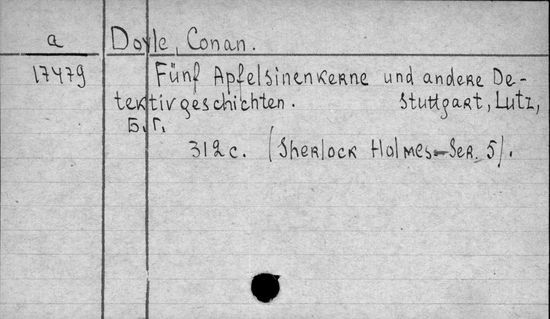 a Doyle, Conan.
17479 Fünf Apfelsinenkerne und andere De-
tektivgeschichten. Stuttgart, Lutz,
Б.Г.
312 с. (Sherlock Holmes-Ser. 5).